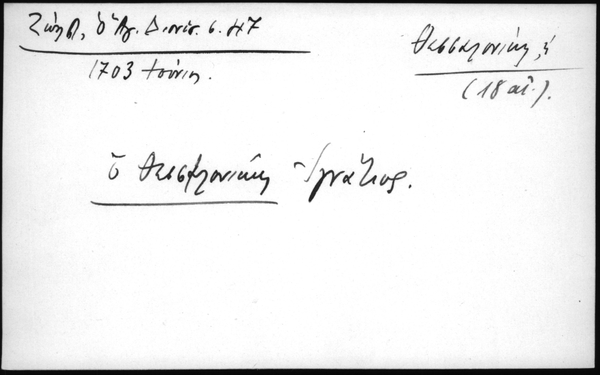 Ζώη Λ, ὁ Ἅγ. Διονύσ. σ. 47
1703 Ἰούνιο.
Θεσσαλονίκη, ἡ
(18 αἰ.).
ὁ Θεσσαλονίκης Ἰγνάτιος.